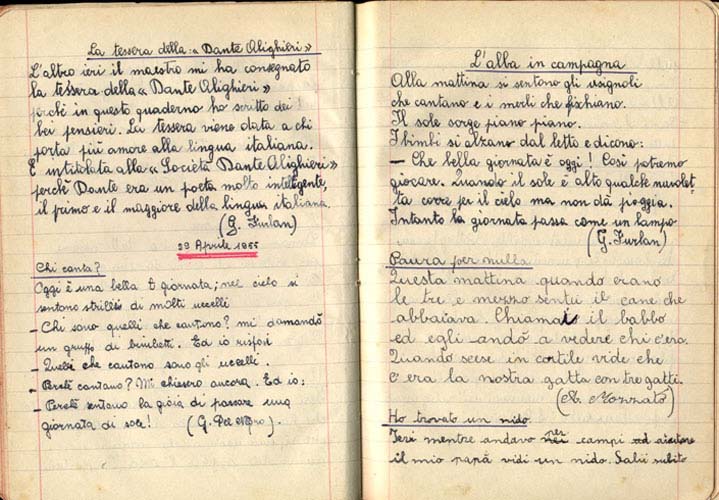 La tessera della: «Dante Alighieri»
L'altro ieri il maestro mi ha consegnato
la tessera della «Dante Alighieri»
perchè in questo quaderno ho scritto dei
bei pensieri. La tessera viene data a chi
porta più amore alla lingua italiana.
È intitolata alla «Società Dante Alighieri»
perchè Dante era un poeta molto intelligente,
il primo e il maggiore della lingua italiana.
(G. Furlan)
Aprile 1955
Chi canta?
Oggi è una bella giornata; nel cielo si
sentono strilli di molti uccelli
- Chi sono quelli che cantano? mi domandò
un gruppo di bimbetti. Ed io risposi
- Quelli che cantano sono gli uccelli.
- Perchè cantano? Mi chiesero ancora. Ed io:
- Perchè sentono la gioia di passare una
giornata di sole! (G. Dal
L'alba in campagna
Alla mattina si sentono gli usignoli
che cantano e i merli che fischiano.
Il sole sorge piano piano.
I bimbi si alzano dal letto e dicono:
- Che bella giornata è oggi! Così potremo
giocare. Quando il sole è alto qualche nuvolet-
ta corre per il cielo ma non dà pioggia.
Intanto la giornata passa come un lampo
(G. Furlan)
Paura per nulla
Questa mattina quando erano
le tre e mezzo sentii il cane che
abbaiava. Chiamai il babbo
ed egli andò a vedere chi c'era.
Quando scese in cortile vide che
c'era la nostra gatta con tre gatti.
(A. Mozzato)
Ho trovato un nido
Ieri mentre andavo nei per campi ad aiutare
il mio papà vidi un nido. Salii subito